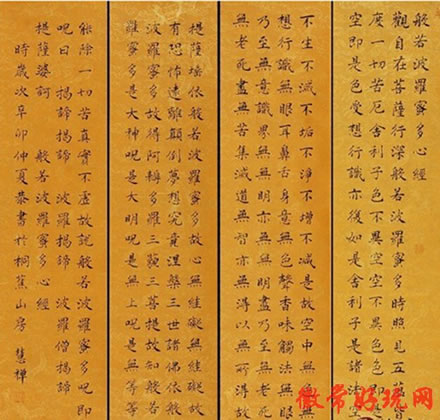 般若波羅蜜多心經
觀自在菩薩行深般若波羅蜜多時照見五
度一切苦厄舍利子色不異空空不異色
空即是色受想行識亦復如是舍利子是諸法
不生不滅不垢不淨不增不減是故空中無色無
想行識無眼耳鼻舌身意無色聲香味觸法無眼
乃至無意識界無無明亦無無明盡乃至無老
無老死盡無苦集滅道無智亦無得以無所得故
提薩埵依般若波羅蜜多故心無罣礙無罣礙故
有恐怖遠離顛倒夢想究竟涅槃三世諸佛依般
羅蜜多故得阿耨多羅三藐三菩提故知般若
羅蜜多是大神咒是大明咒是無上咒是無等等
能除一切苦真實不虛故說般若波羅蜜多咒即
咒曰 揭諦揭諦 波羅揭諦 波羅僧揭諦
提薩婆訶 般若波羅蜜多心經
時歲次辛卯仲夏恭書於桐蕉山房 慧禪
常好玩网